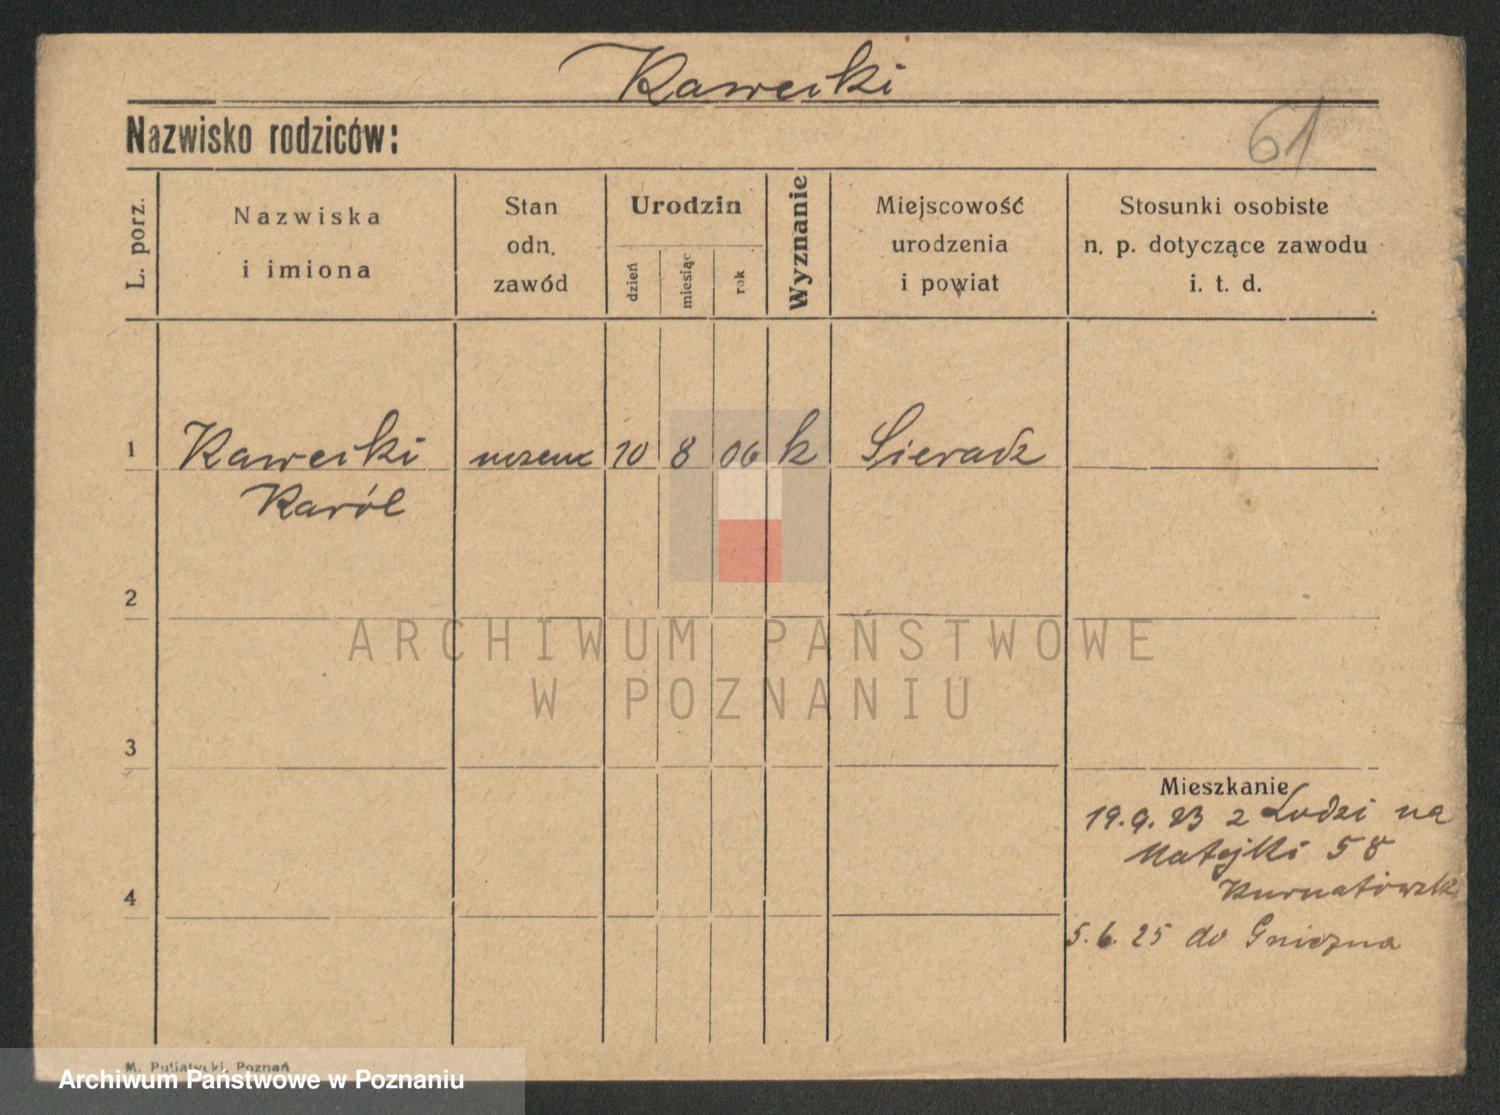 Kawecki
Nazwisko rodziców:
61
L. porz.
Nazwiska
i imiona
Stan
odn.
zawód
Urodzin
dzień
miesiąc
rok
Wyznanie
Miejscowość
urodzenia
i powiat
Stosunki osobiste
n. p. dotyczące zawodu
i. t. d.
1 Kawecki 10 8 06 k Sieradz
Karól
2
3
Mieszkanie
19.9.23 z Łodzi na
Matejki 58
4
5.6.25 do Gniezna
M. Putiatycki, Poznań
ARCHIWUM PAŃSTWOWE
W POZNANIU
Archiwum Państwowe w Poznaniu